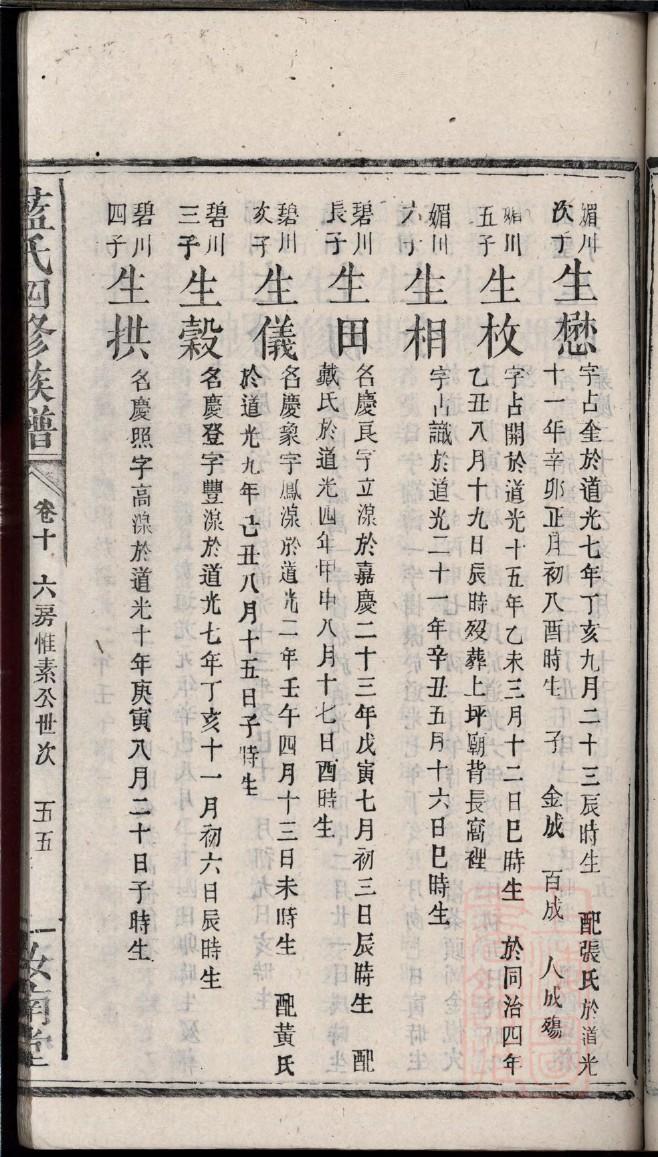 媚川
次子
生懋
字占奎於道光七年丁亥九月二十三辰時生 配張氏於道光
十一年辛卯正月初八酉時生 子 金成 百成 人成殤
媚川
五子
生枚
字占開於道光十五年乙未三月十二日巳時生 於同治四年
乙丑八月十九日辰時歿葬上坪廟背長窩裡
媚川
六子
生相
字占識於道光二十一年辛丑五月十六日巳時生
碧川
長子
生田
名慶良字立淙於嘉慶二十三年戊寅七月初三日辰時生 配
戴氏於道光四年甲申八月十七日酉時生
碧川
次子
生儀
名慶象字鳳淙於道光二年壬午四月十三日未時生 配黃氏
於道光九年己丑八月十五日子時生
碧川
三子
生穀
名慶登字豐淙於道光七年丁亥十一月初六日辰時生
碧川
四子
生拱
名慶照字高淙於道光十年庚寅八月二十日子時生
藍氏四修族譜
卷十 六房惟素公世次 五五
汝南堂